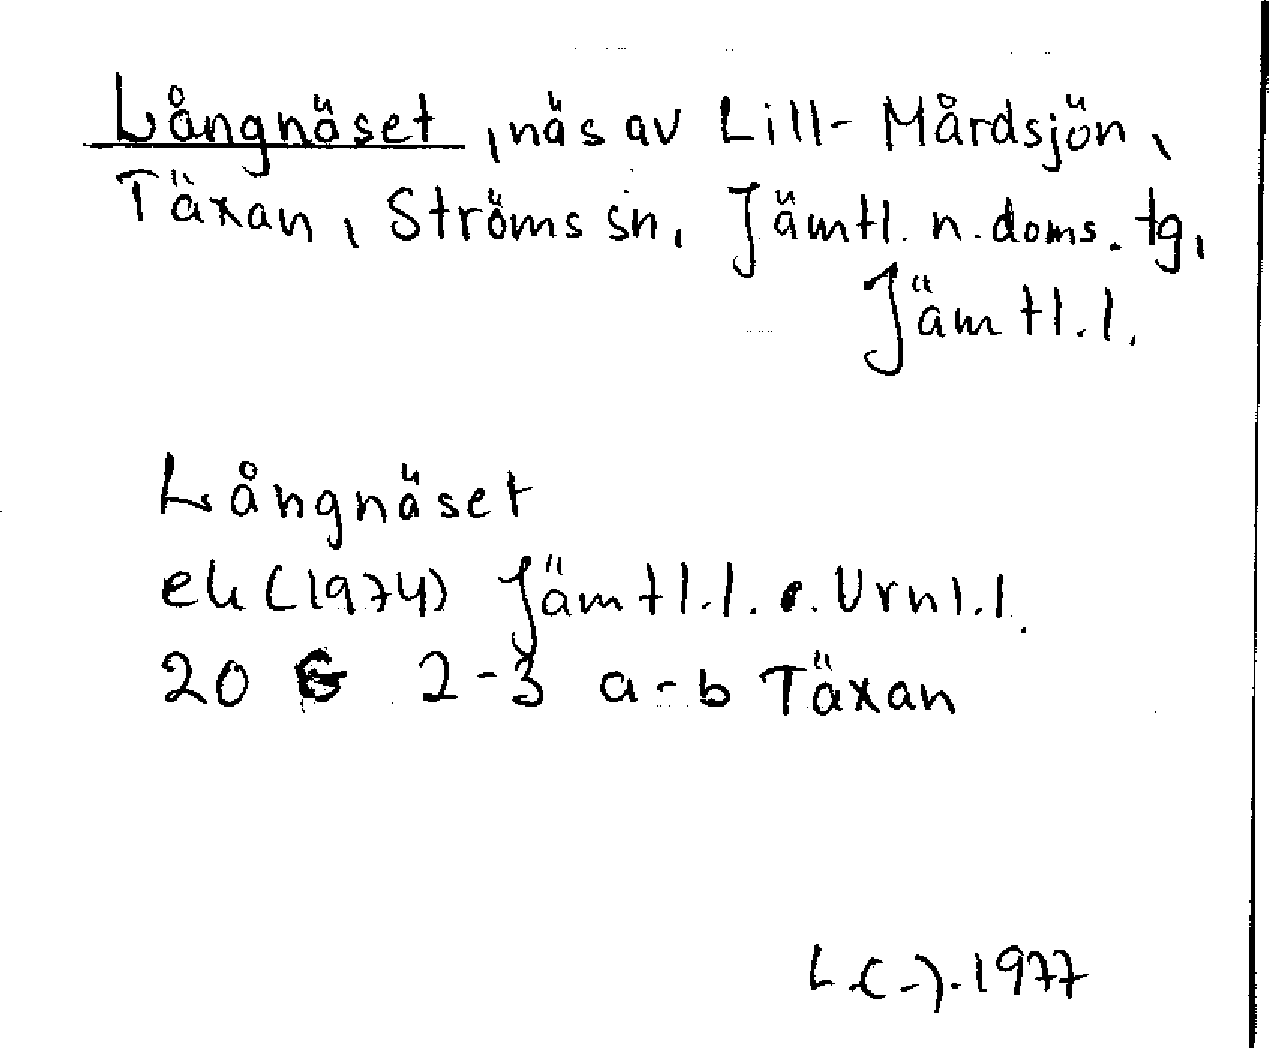 Långnäset, näs av Lill-Mårdsjön,
Täxan, Ströms sn, Jämtl. n. doms. tg,
Jämtl. l.
Långnäset
ek (1974) Jämtl. l. o. Urnl. l.
20 G 2-3 a-b Täxan
L.(-).1977